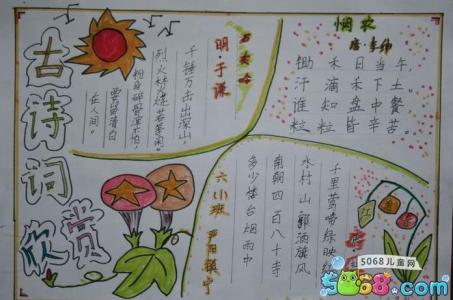 古诗词欣赏
石灰吟
明·于谦
千锤万击出深山
烈火林火烧若等闲。
粉身碎骨浑不怕
要留清白
在人间。
悯农
唐·李绅
锄禾日当午。
汗滴禾下土
谁知盘中餐
粒粒皆辛苦
千里莺啼绿映
水村山郭酒旗风
南朝四百八十寺
多少楼台烟雨中
六小班
5068儿童网
5068.com